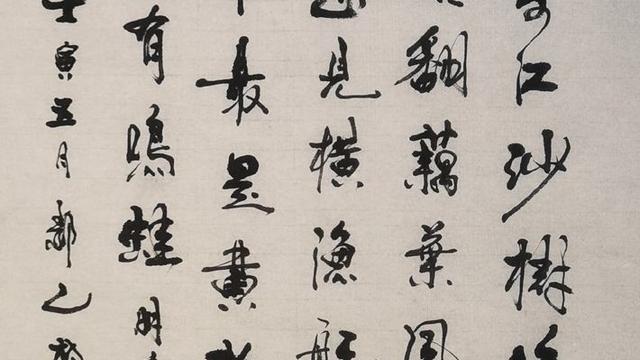 江沙樹
翻藕葉風
見橫漁
最是畫
有鳴蛙明
壬寅五月鄒乙